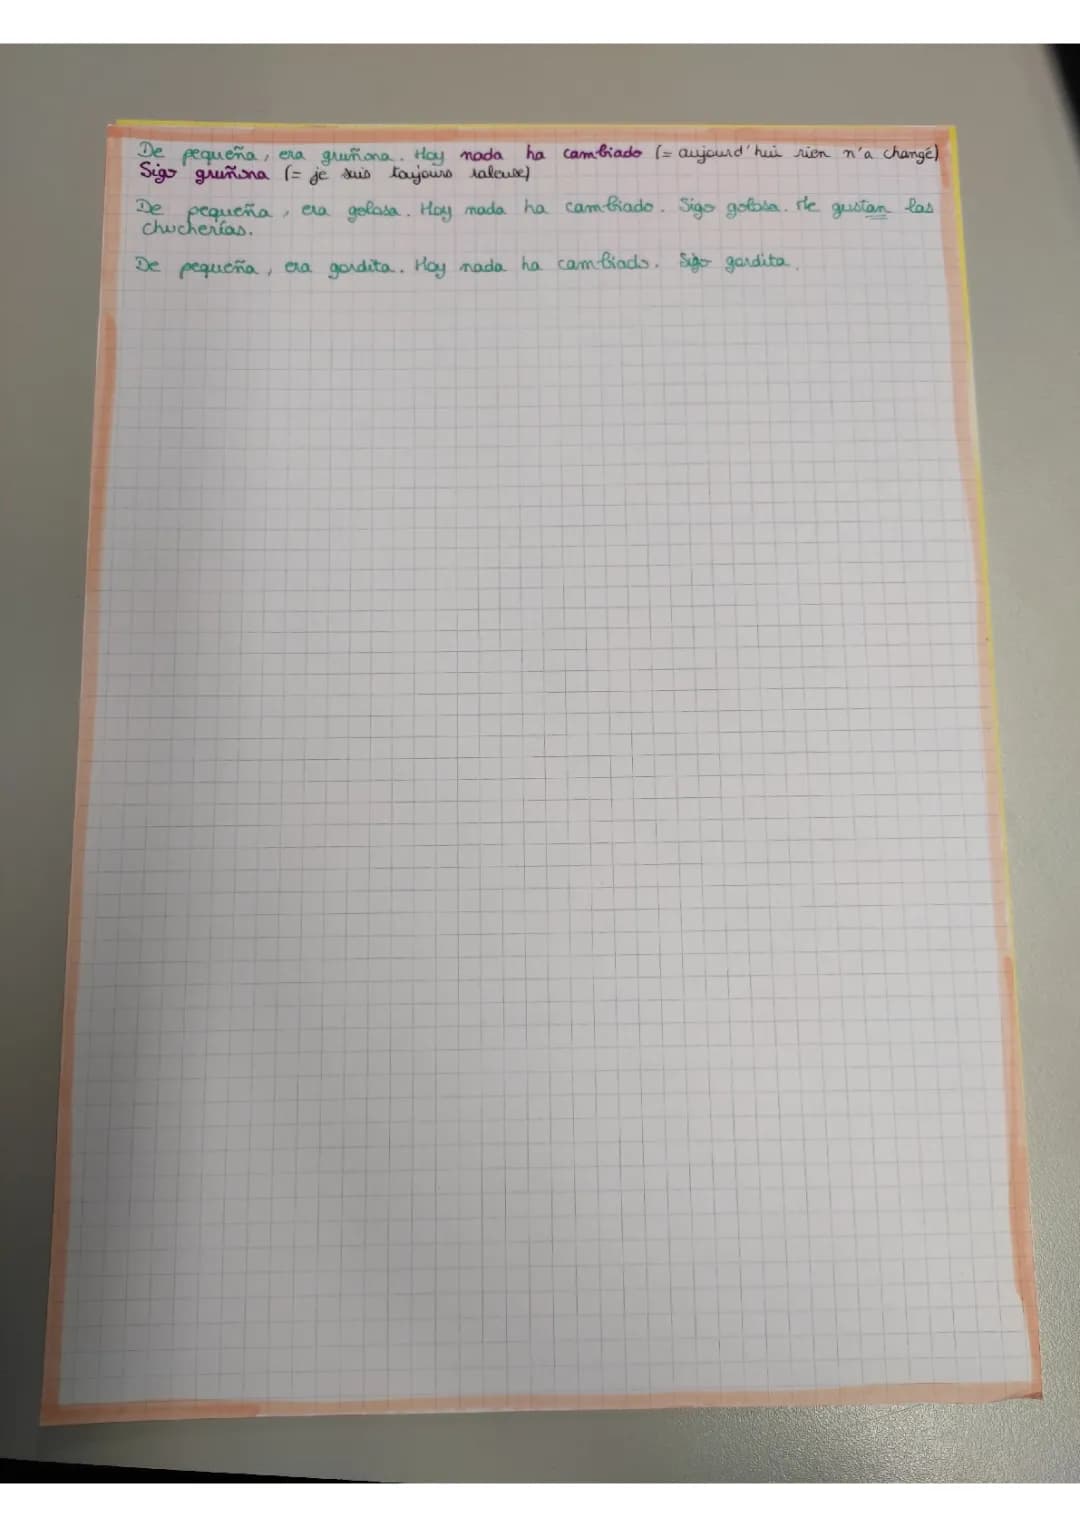 De pequeña, era gruñona. Hoy nada ha cambiado (= aujourd'hui rien n'a changé)
Sigo gruñona (= je suis toujours raleuse)
De pequeña, era golosa. Hoy nada ha cambiado. Sigo golosa. Me gustan las
chucherías.
De pequeña, era gordita. Hoy nada ha cambiado. Sigo gordita.